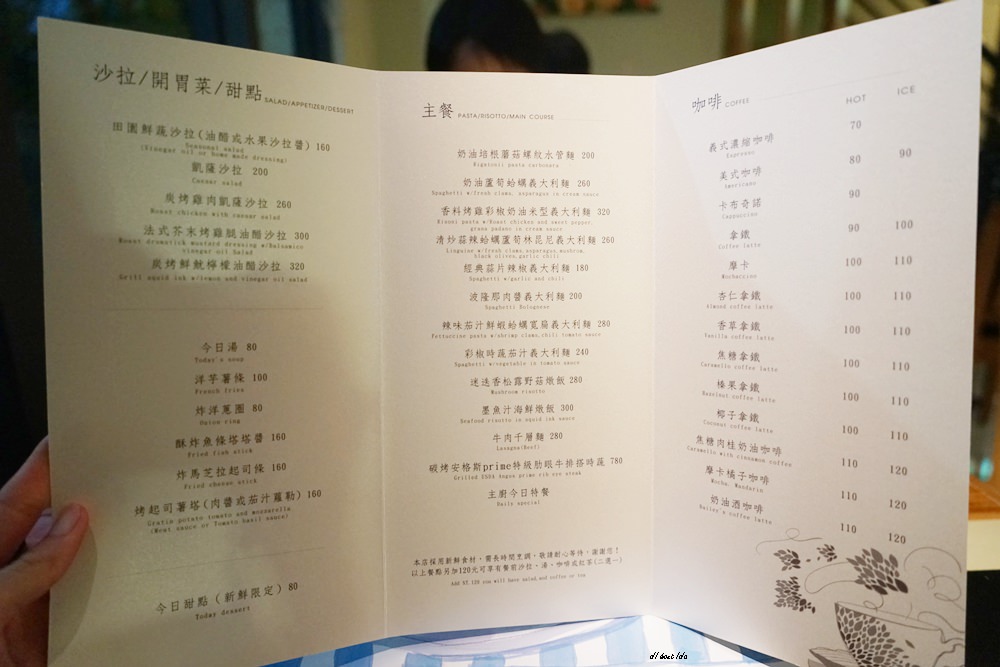 沙拉/開胃菜/甜點 SALAD/APPETIZER/DESSERT
田園鮮蔬沙拉(油醋或水果沙拉醬) 160
Seasonal salad
(Vinegar oil or home made dressing)
凱薩沙拉 200
Caesar salad
炭烤雞肉凱薩沙拉 260
Roast chicken with caesar salad
法式芥末烤雞腿油醋沙拉 300
Roast dramatick mustard dressing w/Balsamico
vinegar oil Salad
炭烤鮮魷檸檬油醋沙拉 320
Grill squid ink w/lemon and vinegar oil salad
今日湯 80
Today's soup
洋芋薯條 100
French fries
炸洋蔥圈 80
Onion ring
酥炸魚條塔塔醬 160
Fried fish stick
炸馬芝拉起司條 160
Fried cheese stick
烤起司薯塔(肉醬或茄汁蘿勒) 160
Gratin potato tomato and mozzarella
(Meat sauce or Tomato basil sauce)
今日甜點 (新鮮限定) 80
Today dessert
主餐 PASTA/RISOTTO/MAIN COURSE
奶油培根蘑菇螺紋水管麵 200
Rigatonic pasta carbonara
奶油蘆筍蛤蠣義大利麵 260
Spaghetti w/fresh clams, asparagus in cream sauce
香料烤雞彩椒奶油米型義大利麵 320
Risoni pasta w/Roast chicken and sweet pepper
grana padano in cream sauce
清炒蒜辣蛤蠣蘆筍林昆尼義大利麵 260
Linguine w/fresh clams,asparagus,mushrom,
black olives,garlic chili
經典蒜片辣椒義大利麵 180
Spaghetti w/garlic and chili
波隆那肉醬義大利麵 200
Spaghetti Bolognese
辣味茄汁鮮蝦蛤蠣寬扁義大利麵 280
Fettuccine pasta w/shrimp clams,chili tomato sauce
彩椒時蔬茄汁義大利麵 240
Spaghetti w/vegetable in tomato sauce
迷迭香松露野菇燉飯 280
Mushroom risotto
墨魚汁海鮮燉飯 300
Seafood risotto in squid ink sauce
牛肉千層麵 280
Lasagna(Beef)
碳烤安格斯prime特級肋眼牛排搭時蔬 780
Grilled USDA Angus prime rib eye steak
主廚今日特餐
Daily special
本店採用新鮮食材,需長時間烹調,敬請耐心等待,謝謝您!
以上餐點另加120元可享有餐前沙拉、湯、咖啡或紅茶(二選一)
Add NT.120 you will have salad,and coffee or tea
咖啡 COFFEE HOT ICE
義式濃縮咖啡 70
Espresso
美式咖啡 80 90
Americano
卡布奇諾 90
Cappuccino
拿鐵 90 100
Coffee latte
摩卡 100 110
Mochaccino
杏仁拿鐵 100 110
Almond coffee latte
香草拿鐵 100 110
Vanilla coffee latte
焦糖拿鐵 100 110
Caramello coffee latte
榛果拿鐵 100 110
Hazelnut coffee latte
椰子拿鐵 100 110
Coconut coffee latte
焦糖肉桂奶油咖啡 110 120
Caramello with cinnamon coffee
摩卡橘子咖啡 110 120
Mocha, Mandarin
奶油酒咖啡 110 120
Bailey's coffee latte